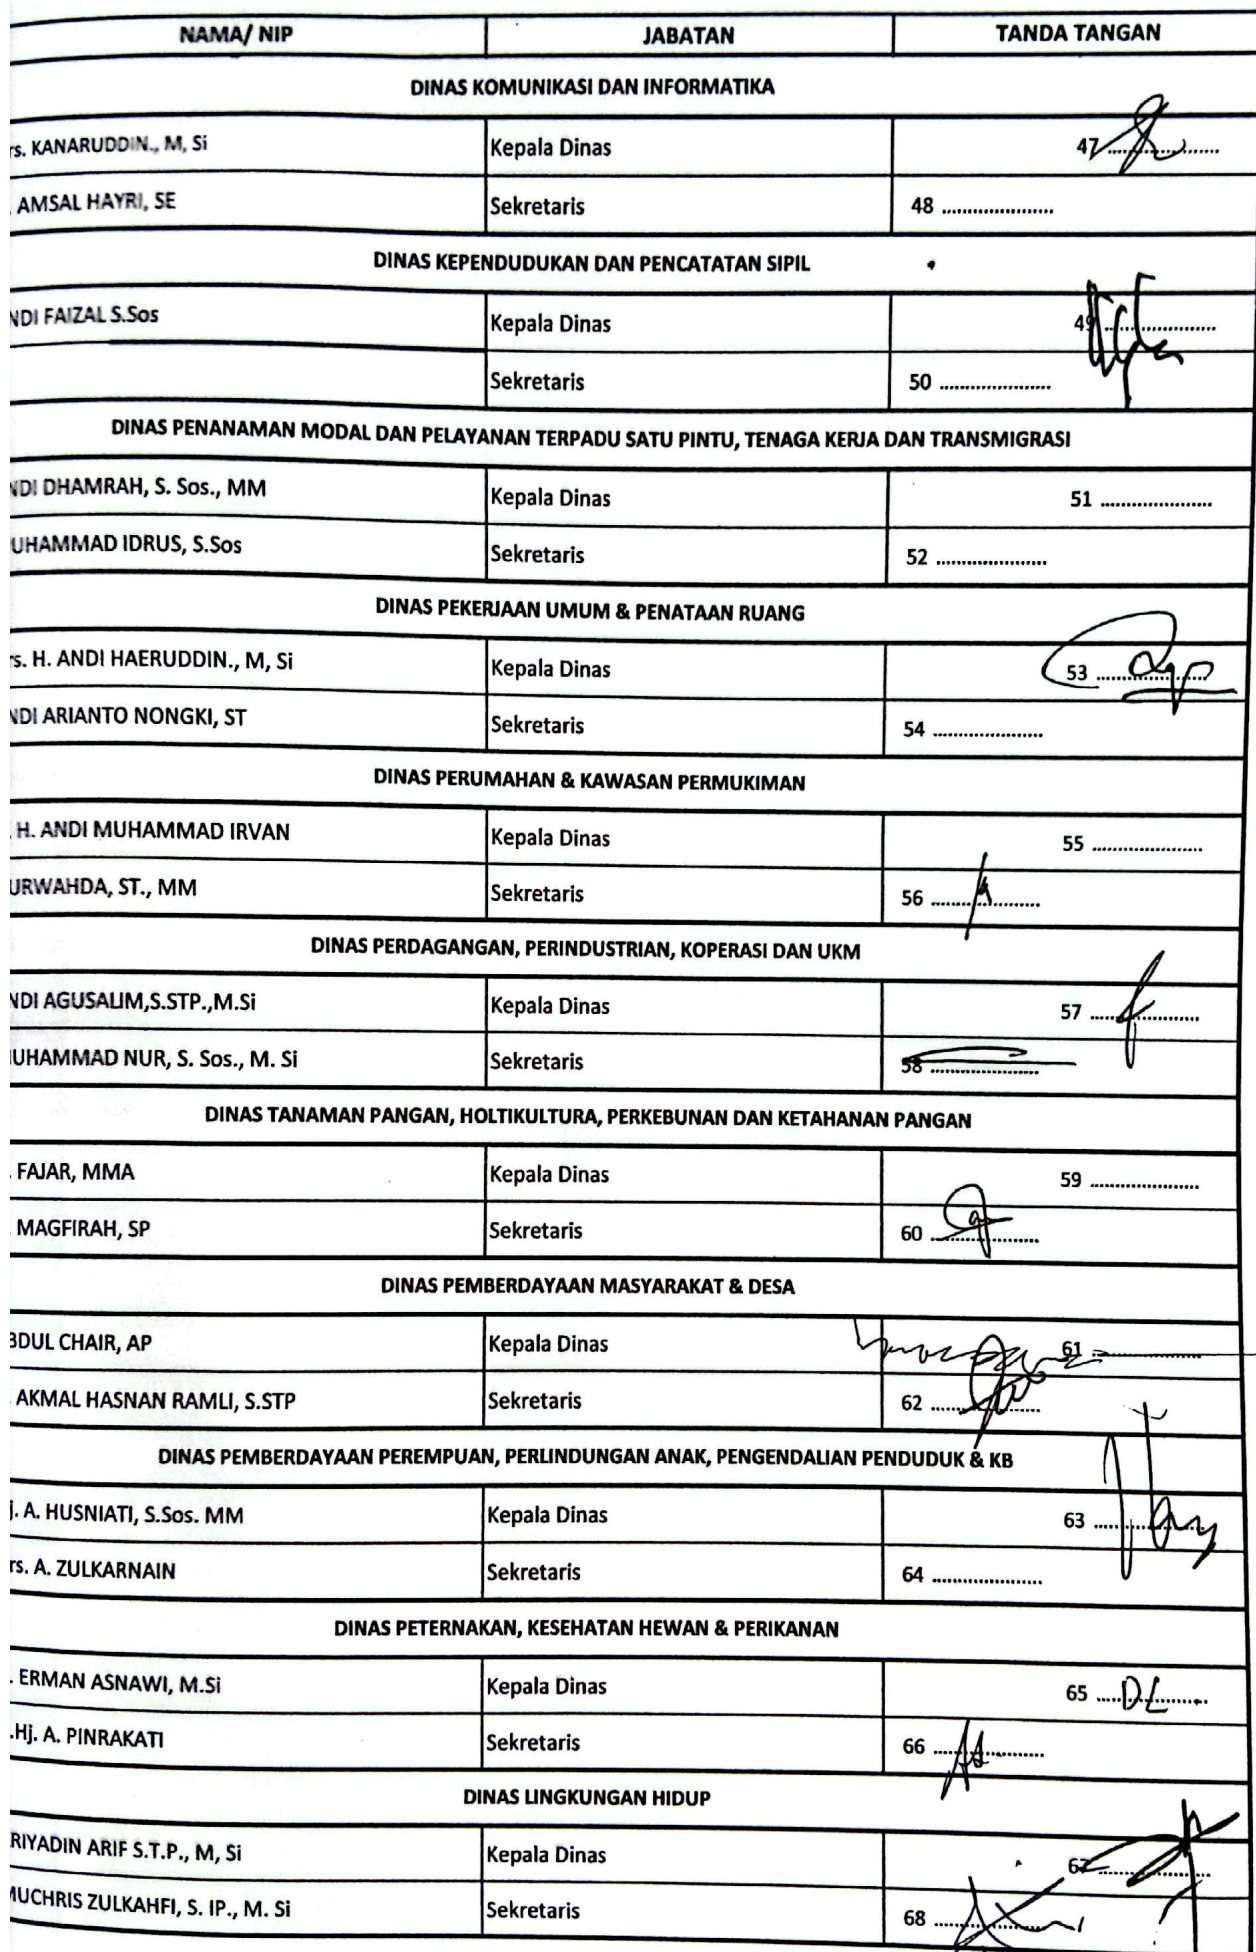 NAMA/ NIP JABATAN TANDA TANGAN
DINAS KOMUNIKASI DAN INFORMATIKA
rs. KANARUDDIN., M, Si Kepala Dinas 47 ......................
AMSAL HAYRI, SE Sekretaris 48 ......................
DINAS KEPENDUDUKAN DAN PENCATATAN SIPIL
NDI FAIZAL S.Sos Kepala Dinas 49 ......................
Sekretaris 50 ......................
DINAS PENANAMAN MODAL DAN PELAYANAN TERPADU SATU PINTU, TENAGA KERJA DAN TRANSMIGRASI
NDI DHAMRAH, S. Sos., MM Kepala Dinas 51 ......................
UHAMMAD IDRUS, S.Sos Sekretaris 52 ......................
DINAS PEKERJAAN UMUM & PENATAAN RUANG
rs. H. ANDI HAERUDDIN., M, Si Kepala Dinas 53 ......................
NDI ARIANTO NONGKI, ST Sekretaris 54 ......................
DINAS PERUMAHAN & KAWASAN PERMUKIMAN
H. ANDI MUHAMMAD IRVAN Kepala Dinas 55 ......................
URWAHDA, ST., MM Sekretaris 56 ......................
DINAS PERDAGANGAN, PERINDUSTRIAN, KOPERASI DAN UKM
NDI AGUSALIM,S.STP.,M.Si Kepala Dinas 57 ......................
UHAMMAD NUR, S. Sos., M. Si Sekretaris 58 ......................
DINAS TANAMAN PANGAN, HOLTIKULTURA, PERKEBUNAN DAN KETAHANAN PANGAN
. FAJAR, MMA Kepala Dinas 59 ......................
MAGFIRAH, SP Sekretaris 60 ......................
DINAS PEMBERDAYAAN MASYARAKAT & DESA
BDUL CHAIR, AP Kepala Dinas 61 ......................
AKMAL HASNAN RAMLI, S.STP Sekretaris 62 ......................
DINAS PEMBERDAYAAN PEREMPUAN, PERLINDUNGAN ANAK, PENGENDALIAN PENDUDUK & KB
j. A. HUSNIATI, S.Sos. MM Kepala Dinas 63 ......................
rs. A. ZULKARNAIN Sekretaris 64 ......................
DINAS PETERNAKAN, KESEHATAN HEWAN & PERIKANAN
. ERMAN ASNAWI, M.Si Kepala Dinas 65 ..... DL ......
.Hj. A. PINRAKATI Sekretaris 66 ......................
DINAS LINGKUNGAN HIDUP
RIYADIN ARIF S.T.P., M, Si Kepala Dinas 67 ......................
MUCHRIS ZULKAHFI, S. IP., M. Si Sekretaris 68 ......................